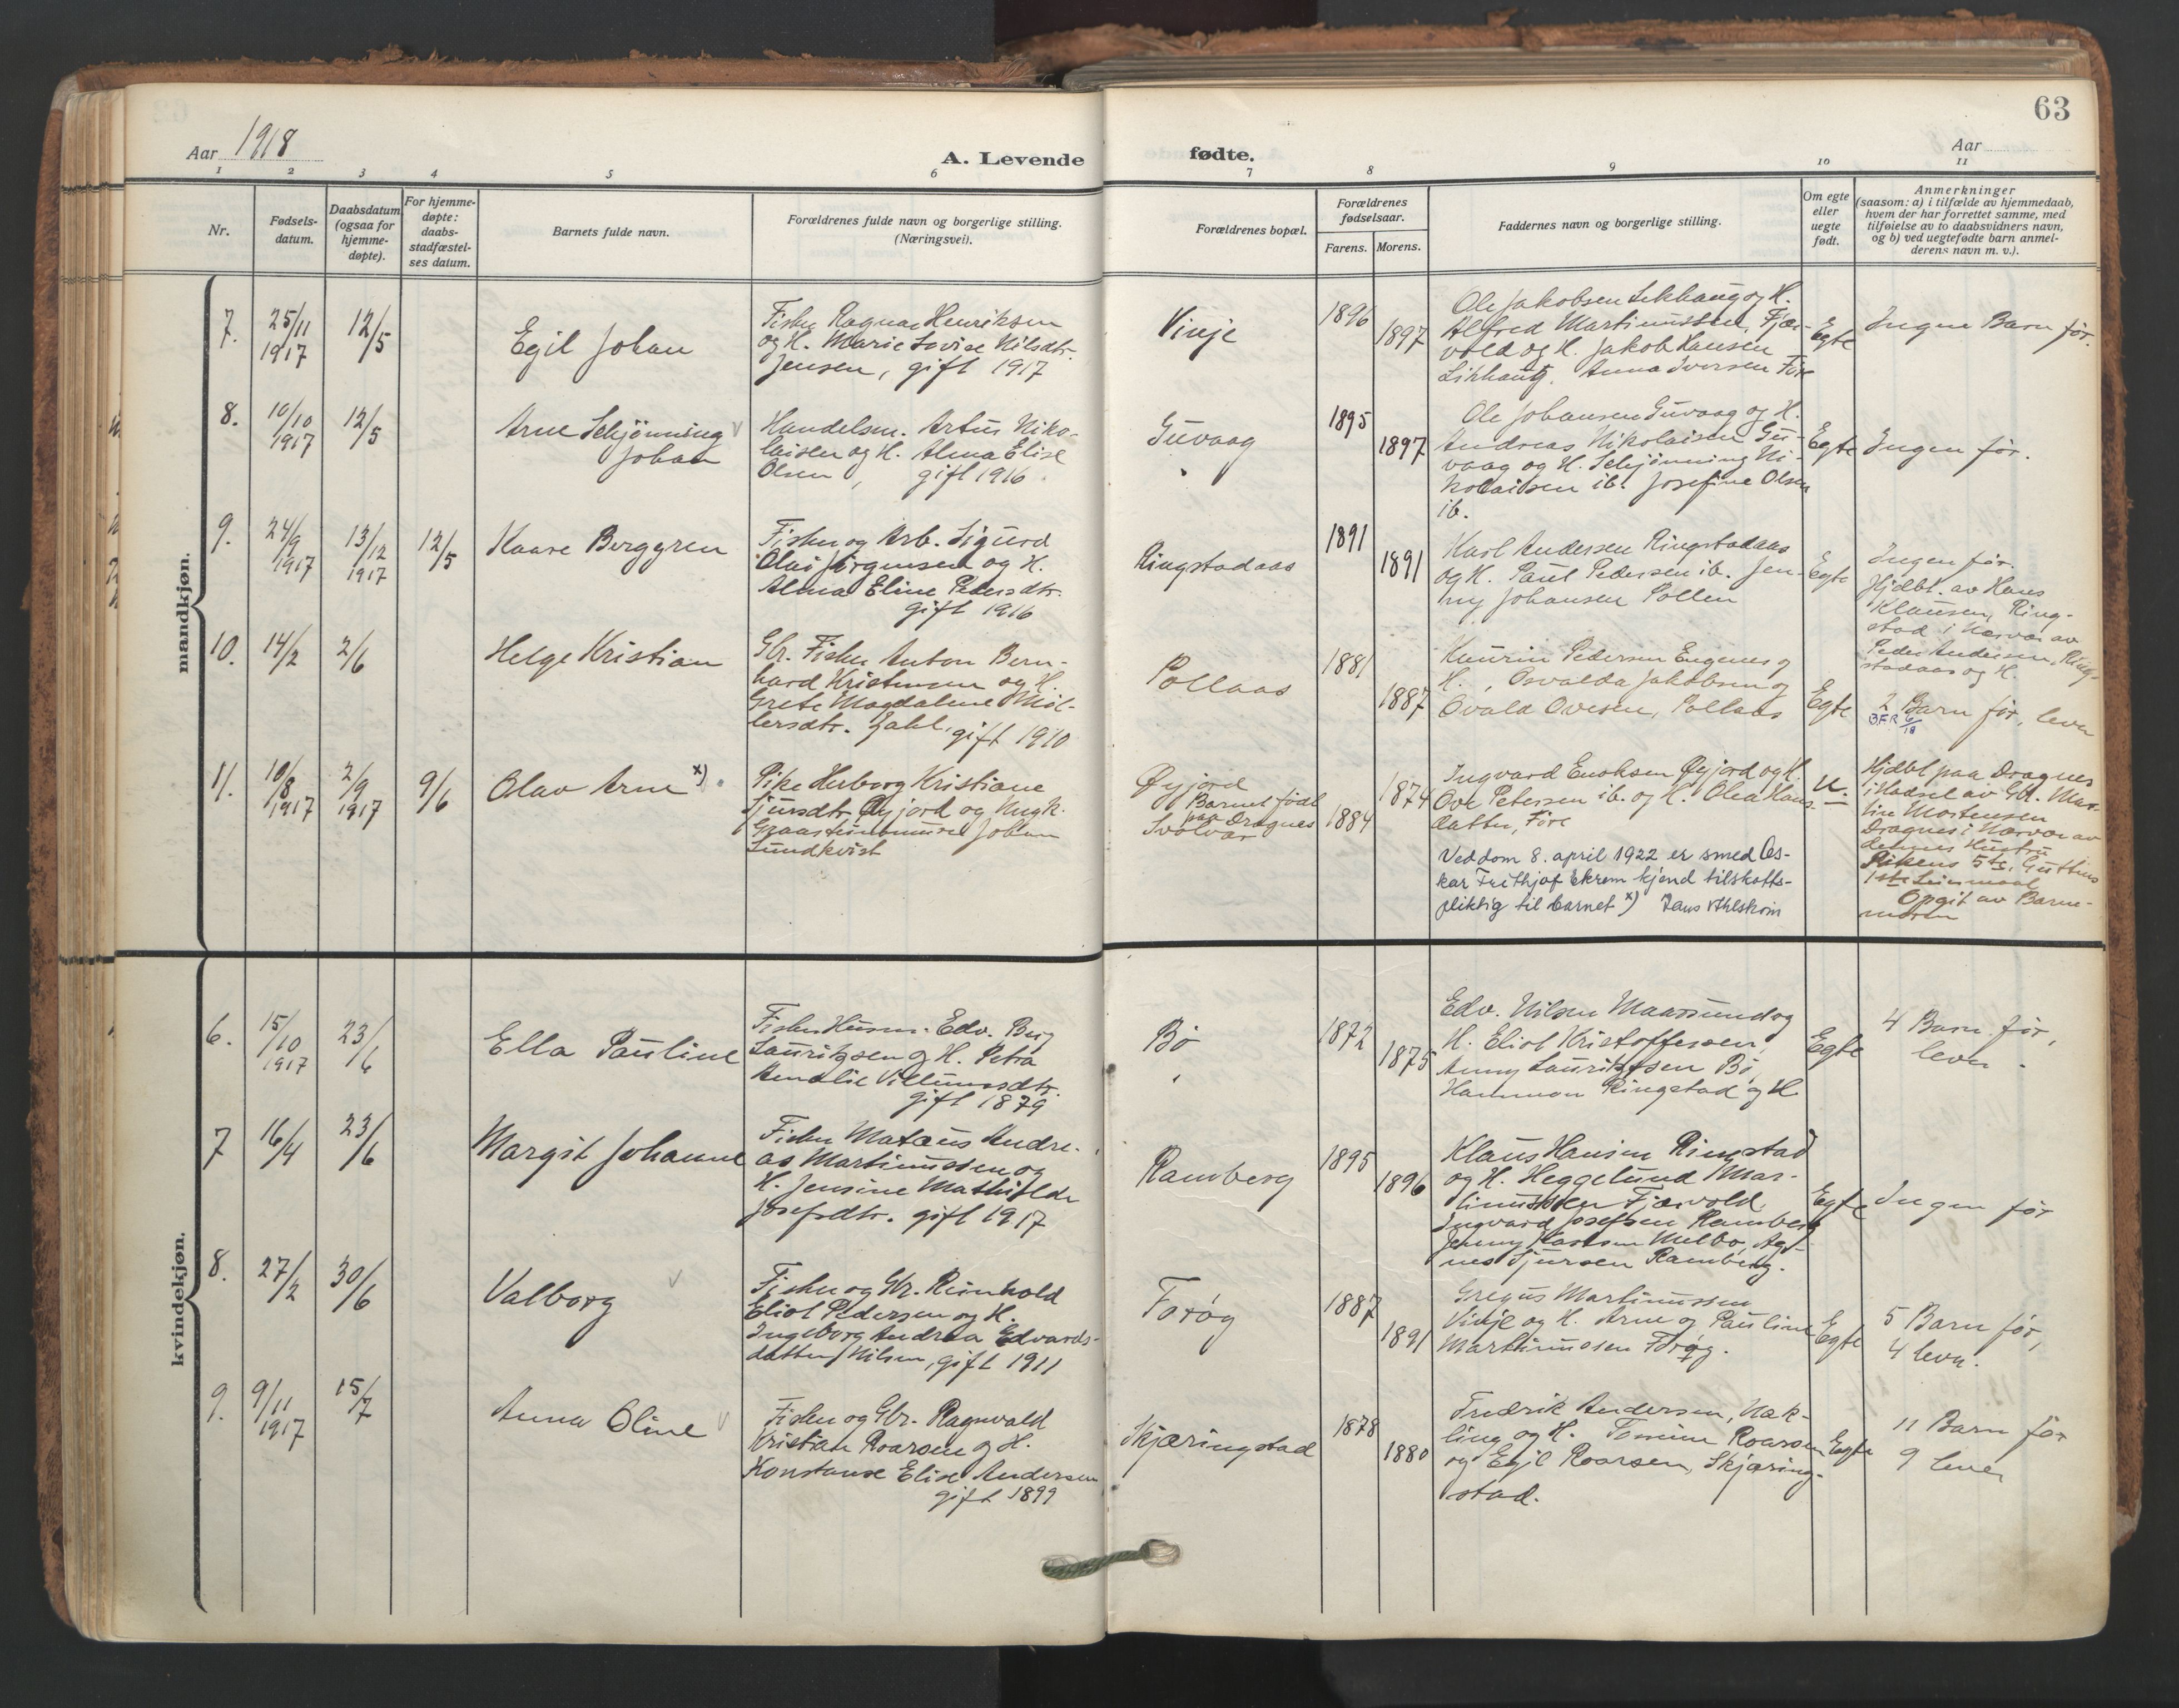 63
Aar 1918
A. Levende fødte.
Aar
1 2 3 4 5 6 7 8 9 10 11
Nr.
Fødsels-
datum.
Daabsdatum
(ogsaa for
hjemme-
døpte).
For hjemme-
døpte:
daabs-
stadfæstel-
ses datum.
Barnets fulde navn.
Forældrenes fulde navn og borgerlige stilling.
(Næringsvei).
Forældrenes bopæl.
Forældrenes
fødselsaar.
Farens. Morens.
Faddernes navn og borgerlige stilling.
Om egte
eller
uegte
født.
Anmerkninger
(saasom: a) i tilfælde av hjemmedaab,
hvem der har forrettet samme, med
tilføielse av to daabsvidners navn,
og b) ved uegtefødte barn anmel-
derens navn m. v.).
mandkjøn.
7.
25/11
1917
12/5
Egil Johan
Fisker Ragnar Henriksen
og H. Marie Lovise Nilsdtr.
Jensen, gift 1917
Vinje
1896
1897
Ole Jakobsen Likhaug og H.
Alfred Martinussen, Fjær-
vold og H. Jakob Hansen
Likhaug. Anna Iversen Føre
Egte
Ingen Barn før.
8.
10/10
1917
12/5
Arne Schjønning
Johan
Handelsm. Artus Niko-
laisen og H. Alma Elise
Olsen, gift 1916.
Guvaag
1895
1897
Ole Johansen Guvaag og H.
Andreas Nikolaisen Gu-
vaag og H. Schjønning Ni-
kolaisen ib. Josefine Olsen
ib.
Egte
Ingen før.
9.
24/9
1917
13/12
1917
12/5
Kaare Berggren
Fisker og Arb. Sigurd
Olai Jørgensen og H.
Alma Eline Pedersdtr.
gift 1916
Ringstadaas
1891
1891
Karl Andersen Ringstadaas
og H. Paul Pedersen ib. Jen-
ny Johansen Pollen
Egte
Ingen før.
Hjdbt. av Hans
Klausen, Ring-
stad i Nærvær av
Peder Andersen, Ring-
stadaas og H.
10.
14/2
2/6
Helge Kristian
Gbr. Fisker Anton Bern-
hard Kristensen og H.
Grete Magdalene Møl-
lersdtr. Zahl, gift 1910
Pollaas
1881
1887
Kaurin Pedersen Engenes og
H., Osvalda Jakobsen og
Ovald Ovesen, Pollaas
Egte
2 Barn før, lever
BFR 6/18
11.
10/8
1917
2/9
1917
9/6
Olav Arne x)
Pike Herborg Kristiane
Sjursdtr. Øyjord og Ungk.
Graasteinsmurer Johan
Lundkvist
Øyjord
Barnet født
paa Dragnes
Svolvær
1874
1884
Ingvard Enoksen Øyjord og H.
Ove Petersen ib. og H. Olea Hans-
datter, Føre
Ved dom 8. april 1922 er smed Os-
kar Frithjof Ekrem kjend tilskotts-
pliktig til barnet x) Jens Ahlstrøm
U.
Hjdbt paa Dragnes
i Hadsel av Gbr. Mar-
tin Mortensen
Dragnes i Nærvær av
dennes Hustru
Pikens 5te, Guttens
1ste Leiermaal
Opgit av Barne-
moren
kvindekjøn.
6.
15/10
1917
23/6
Ella Pauline
Fisker Husm. Edv. Berg
Lauritzsen og H. Petra
Amalie Villumsdtr.
gift 1879
Bø
1872
1875
Edv. Nilsen Maarsund og
H. Eliot Kristoffersen,
Anny Lauritzsen Bø,
Hammon Ringstad og H.
Egte
4 Barn før,
lever.
7
16/4
23/6
Margit Johanne
Fisker Matæus Andre-
as Martinussen og
H. Jensine Mathilde
Josefsdtr. gift 1917
Ramberg
1895
1896
Klaus Hansen Ringstad
og H. Heggelund Mar-
tinussen Fjærvold,
Ingvard Josefsen Ramberg
Jenny Klausen Melbo, Ag-
nes Sjursen Ramberg.
Egte
Ingen før
8.
27/2
30/6
Valborg
Fisker og Gbr. Reinhold
Eliot Pedersen og H.
Ingeborg Andrea Edvards-
datter Nilsen, gift 1911
Forøg
1887
1891
Gregus Martinussen
Vinje og H. Arne og Pauline
Martinussen Forøg.
Egte
5 Barn før,
4 lever.
9.
9/11
1917
15/7
Anna Oline
Fisker og Gbr. Ragnvald
Kristian Roarsen og H.
Konstanse Elise Andersen
gift 1899
Skjæringstad
1878
1880
Fredrik Andersen, Nak-
ling og H. Tomine Roarsen
og Egil Roarsen, Skjæring-
stad.
Egte
11 Barn før
9 lever